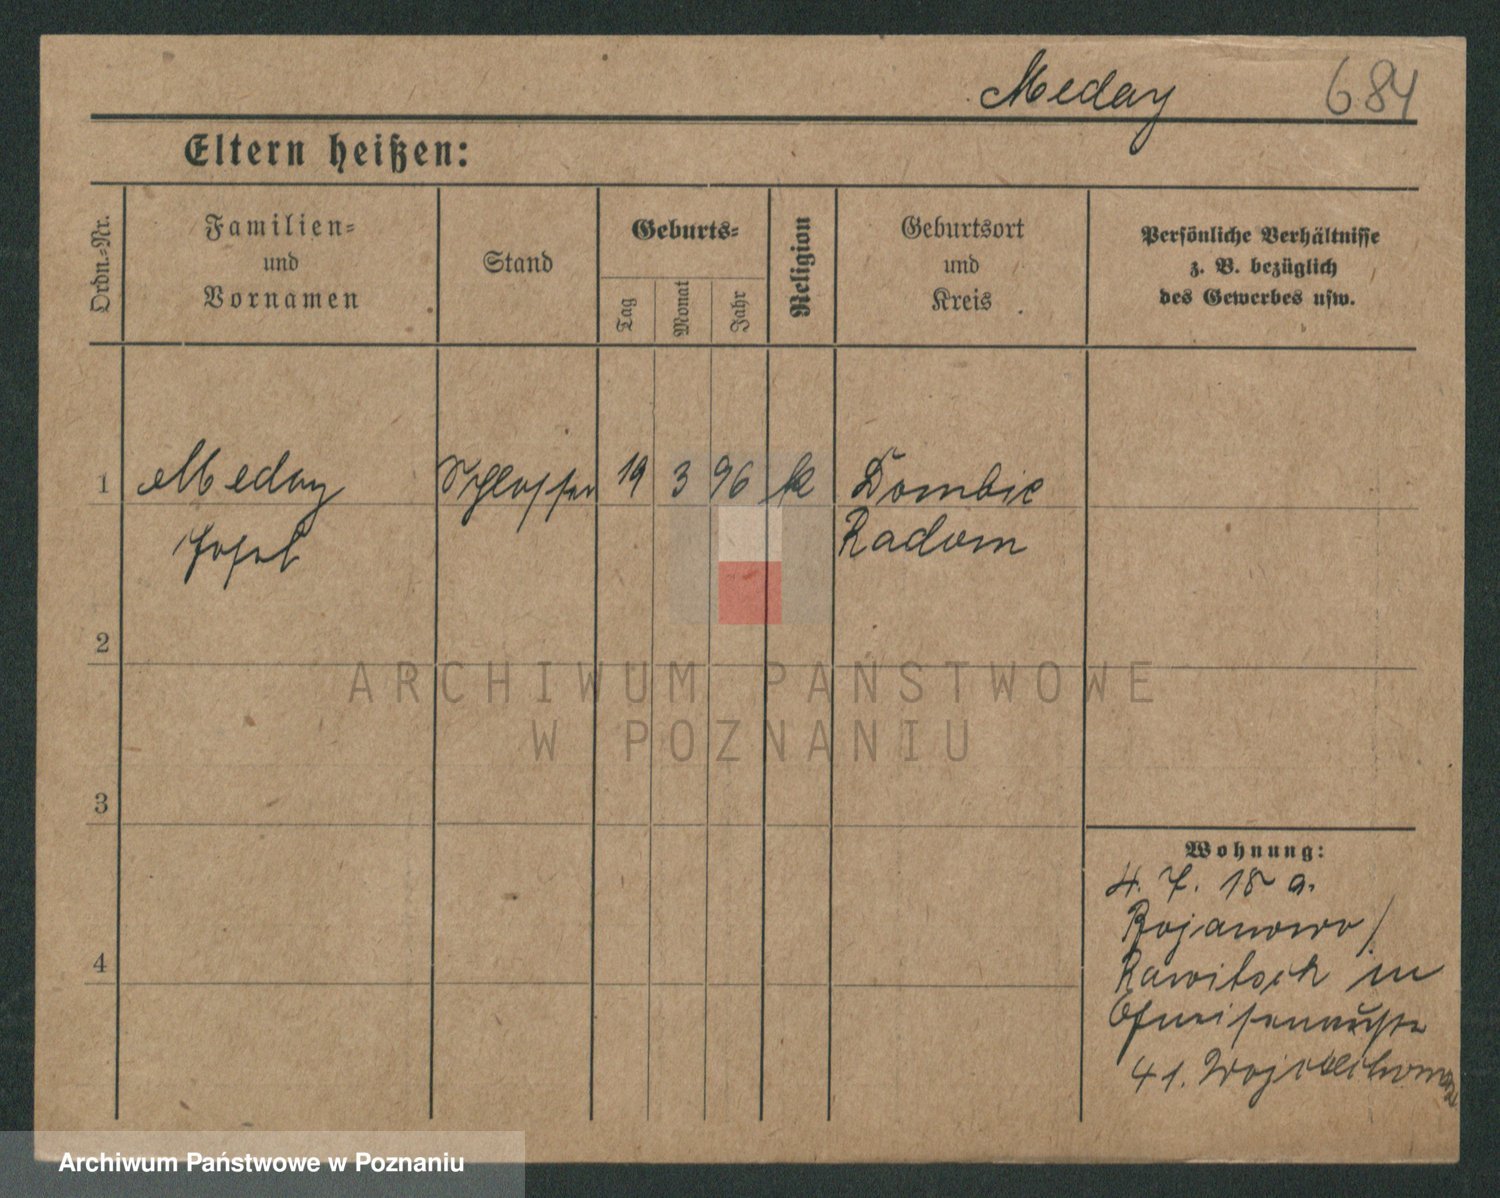 Meday 684
Eltern heißen:
Ordn.-Nr.
Familien-
und
Vornamen
Stand
Geburts-
Tag
Monat
Jahr
Religion
Geburtsort
und
Kreis
Persönliche Verhältnisse
z. B. bezüglich
des Gewerbes usw.
1 Meday Schlosser 19 3 96 k Dombie
Josef Radom
2
3
4
ARCHIWUM PAŃSTWOWE
W POZNANIU
Wohnung:
4. 7. 18 a.
Bojanowo /
Rawitsch in
Gneisenaustr
41. Wojciechowski
Archiwum Państwowe w Poznaniu